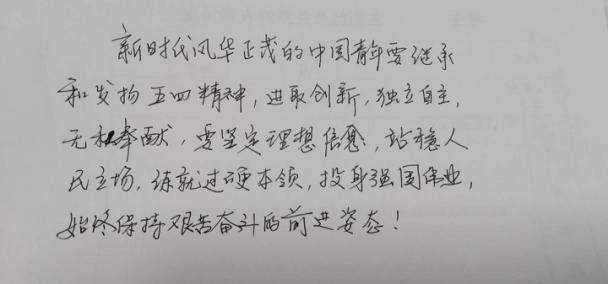 新时代风华正茂的中国青年要继承
和发扬五四精神，进取创新，独立自主，
无私奉献，要坚定理想信念，站稳人
民立场，练就过硬本领，投身强国伟业，
始终保持艰苦奋斗的前进姿态！